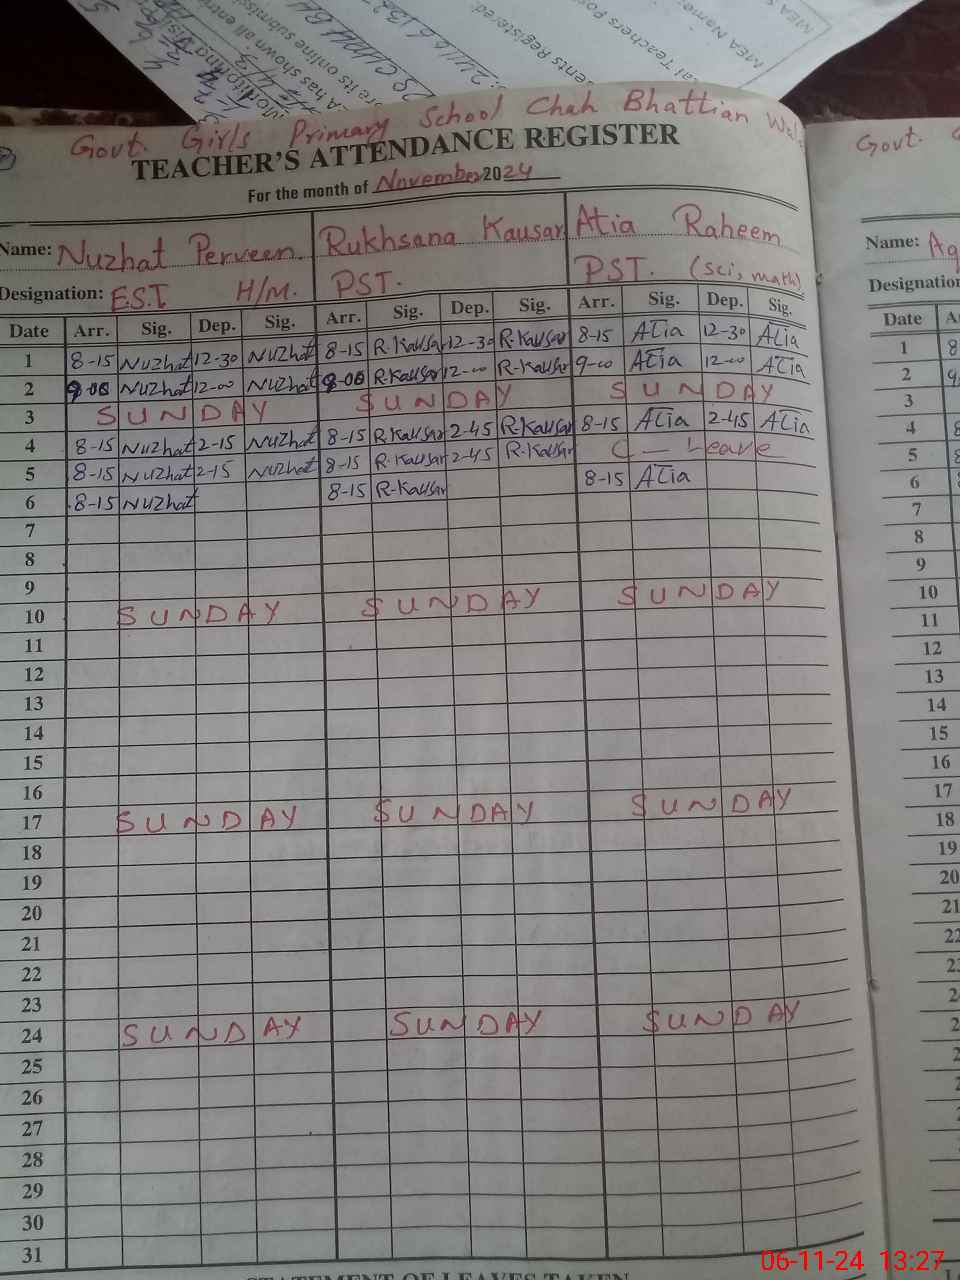 MEA Name:
MEA S
Teachers Pos
ents Registered:
A has shown all
ore its online submission
Govt. Girls Primary School Chah Bhattian Wal
TEACHER'S ATTENDANCE REGISTER
For the month of November 2024
Name: Nuzhat Perveen Rukhsana Kausar Atia Raheem
Designation: E.S.T H/M. PST. PST. (sci, math)
Date Arr. Sig. Dep. Sig. Arr. Sig. Dep. Sig. Arr. Sig. Dep. Sig.
1 8-15 Nuzhat 12-30 Nuzhat 8-15 R.Kausar 12-30 R.Kausar 8-15 Atia 12-30 Atia
2 9-00 Nuzhat 12-00 Nuzhat 9-00 R.Kausar 12-00 R.Kausar 9-00 Atia 12-00 Atia
3 SUNDAY SUNDAY SUNDAY
4 8-15 Nuzhat 2-15 Nuzhat 8-15 R.Kausar 2-45 R.Kausar 8-15 Atia 2-45 Atia
5 8-15 Nuzhat 2-15 Nuzhat 8-15 R.Kausar 2-45 R.Kausar C - Leave
6 8-15 Nuzhat 8-15 R-Kausar 8-15 Atia
7
8
9
10 SUNDAY SUNDAY SUNDAY
11
12
13
14
15
16
17 SUNDAY SUNDAY SUNDAY
18
19
20
21
22
23
24 SUNDAY SUNDAY SUNDAY
25
26
27
28
29
30
31
STATEMENT OF LEAVES TAKEN
Govt.
Name: Ag
Designation
Date A
1 8
2 9
3
4 8
5 8
6 8
7
8
9
10
11
12
13
14
15
16
17
18
19
20
21
22
06-11-24 13:27